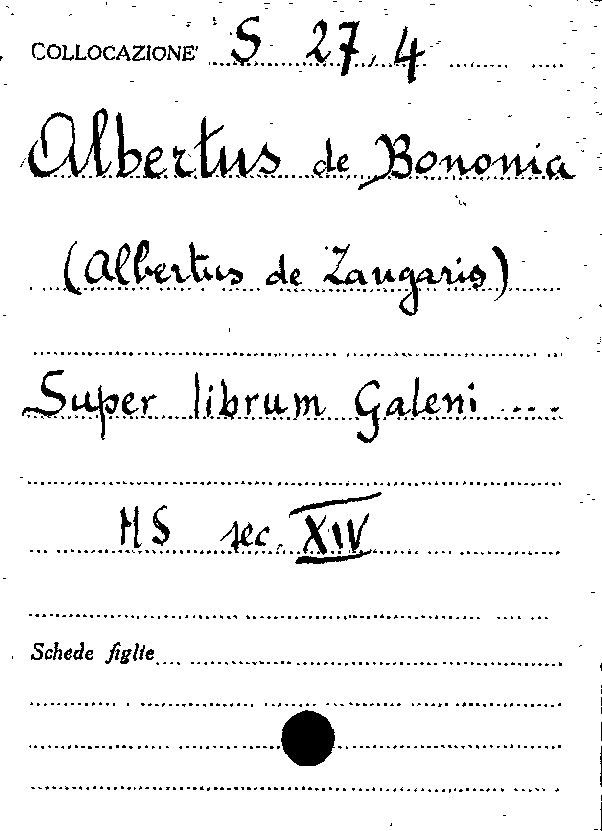 COLLOCAZIONE S 27, 4
Albertus de Bononia
(Albertus de Zaugaris)
Super librum Galeni ...
MS sec. XIV
Schede figlie